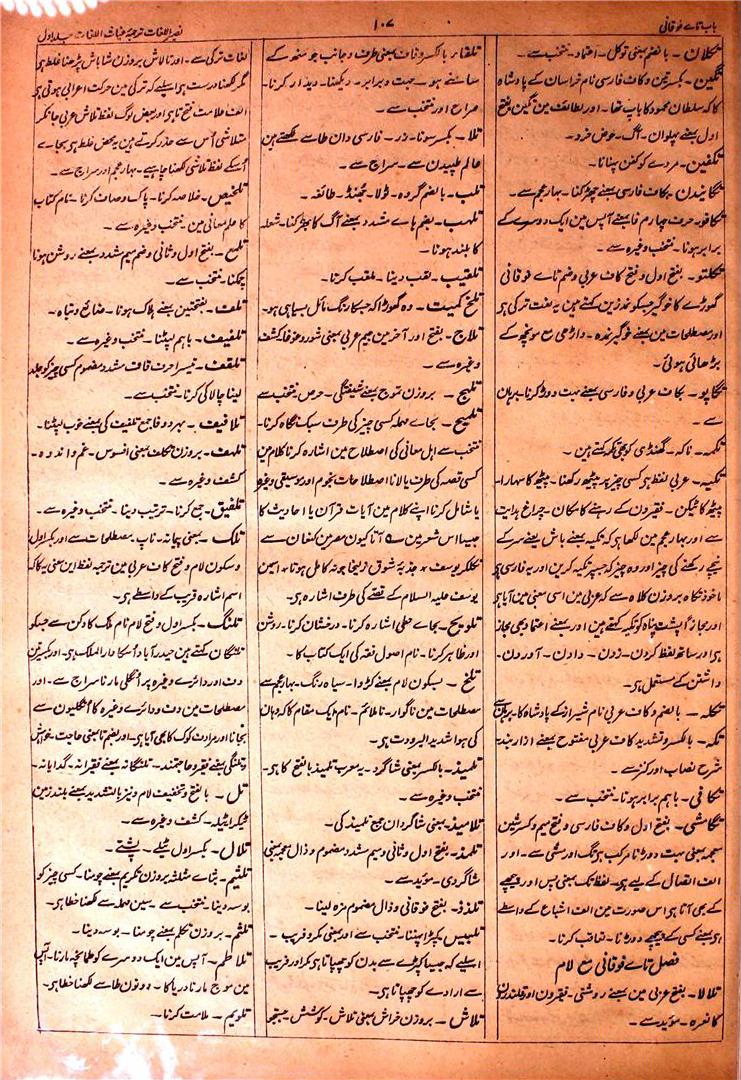 باب تاے فوقانی
۱۰۷
نصیر اللغات ترجمۂ غیاث اللغات جلد اول
تکلان ۔ بالضم بمعنی توکل ۔ اعتماد ۔ منتخب سے ۔
تگین ۔ بکسرتین و کاف فارسی نام خراسان کے پادشاہ
کا کہ سلطان محمود کا باپ تھا ۔ اور لطائف مین تگین بفتح
اول بمعنے پہلوان ۔
تکفین ۔ مردے کو کفن پہنانا ۔
تکانیدن ۔ بکاف فارسی بمعنے جھڑکنا ۔ بہار عجم سے ۔
تکافو ۔ حرف چہارم فا بمعنے آپس مین ایک دوسرے کے
برابر ہونا ۔ منتخب وغیرہ سے ۔
تکلتو ۔ بفتح اول و فتح کاف عربی و ضم تاے فوقانی
گھوڑے کا خوگیر جسکو نمدزین کہتے ہین یہ لغت ترکی ہی
اور مصطلحات مین بمعنے خوگیر نمدہ ۔ داڑھی مع مونچھ کے
بڑھائی ہوئی ۔
تکاپو ۔ بکاف عربی و فارسی بمعنے بہت دوڑنا کرنا ۔ برہان
سے ۔
تکمہ ۔ ناکہ ۔ گھنڈی کو بھی تکمہ کہتے ہین ۔
تکیہ ۔ عربی لفظ ہی کسی چیز پر پیٹھ رکھنا ۔ پیٹھ کا سہارا ۔
پیٹھ کا ٹیکن ۔ فقیرون کے رہنے کا مکان ۔ چراغ ہدایت
سے اور بہار عجم مین لکھا ہی کہ تکیہ بمعنے بالش یعنے سر کے
نیچے رکھنے کی چیز اور وہ چیز کہ جسپر تکیہ کرین اور یہ فارسی ہی
ماخوذ تکاہ بروزن کلاہ سے کہ عربی مین اسی معنی مین آیا ہی
اور مجازاً پشت پناہ کو تکیہ کہتے ہین اور بمعنے اعتماد بھی مجاز
ہی اور ساتھ لفظ کردن ۔ زدن ۔ دادن ۔ آوردن ۔
داشتن کے مستعمل ہی ۔
تکلہ ۔ بالضم و کاف عربی نام شیراز کے پادشاہ کا ۔
تکہ ۔ بالکسر و تشدید کاف عربی مفتوح بمعنے ازار بند ۔
شرح نصاب اور کنز سے ۔
تکافی ۔ باہم برابر ہونا ۔ منتخب سے ۔
تگامشی ۔ بفتح اول و کاف فارسی و فتح میم و کسر شین
معجمہ بمعنی بہت دوڑنا مرکب ہی تگ اور مشی سے ۔ اور
الف اتصال کے لیے ہی ۔ لفظ تگ بمعنی پس اور پیچھے
کے بھی آتا ہی اس صورت مین الف اشباع کے واسطے
ہی بمعنے کسی کے پیچھے دوڑنا ۔ تعاقب کرنا ۔
فصل تاے فوقانی مع لام
تلالا ۔ بفتح عربی مین بمعنے روشنی ۔ فقیرون اور قلندرون
کا نعرہ ۔ مؤید سے ۔
تلقاء بالکسر و قاف بمعنی طرف و جانب جو منھ کے
سامنے ہو ۔ جہت و برابر ۔ دیکھنا ۔ دیدار کرنا ۔
صراح اور منتخب سے ۔
تلا ۔ بکسر سونا ۔ زر ۔ فارسی دان طا سے لکھتے ہین
عالم طپیدن سے ۔ سراج سے ۔
تلب ۔ بالضم گروہ ۔ ٹولا ۔ جھنڈ ۔ طائفہ ۔
تلہب ۔ بضم ہاے مشدد بمعنے آگ کا بھڑکنا ۔ شعلہ
کا بلند ہونا ۔
تلقیب ۔ لقب دینا ۔ ملقب کرنا ۔
تلخ کمیت ۔ وہ گھوڑا کہ جسکا رنگ مائل بسیاہی ہو ۔
تلاج ۔ بفتح اور آخر مین جیم عربی بمعنی شور و غوغا کشف
وغیرہ سے ۔
تلہج ۔ بروزن توج بمعنے شیفتگی ۔ حرص منتخب سے
تلمیح ۔ بحاے مہملہ کسی چیز کی طرف سبک نگاہ کرنا ۔
منتخب سے اہل معانی کی اصطلاح مین اشارہ کرنا کلام مین
کسی قصہ کی طرف یا لانا اصطلاحات نجوم اور موسیقی وغیرہ
یا شامل کرنا اپنے کلام مین آیات قرآن یا احادیث کا
جیسا اس شعر مین ے آتا کیون مصر مین کنعان سے
نکلکر یوسف ٭ جذبۂ شوق زلیخا جو نہ کامل ہوتا ٭ اسمین
یوسف علیہ السلام کے قصے کی طرف اشارہ ہی ۔
تلویح ۔ بحاے حطی اشارہ کرنا ۔ درخشان کرنا ۔ روشن
اور ظاہر کرنا ۔ نام اصول فقہ کی ایک کتاب کا ۔
تلخ ۔ بسکون لام بمعنے کڑوا ۔ سیاہ رنگ ۔ بہار عجم سے
مصطلحات مین ناگوار ۔ ناملائم ۔ نام ایک مقام کا کہ وہان
کی ہوا شدید البرودت ہی ۔
تلمیذ ۔ بالکسر بمعنی شاگرد ۔ یہ معرب تلمیذ بالفتح کا ہی ۔
منتخب وغیرہ سے ۔
تلامیذ ۔ بمعنی شاگردان جمع تلمیذ کی ۔
تلمذ ۔ بفتح اول و ثانی و میم مشدد مضموم و ذال معجمہ بمعنی
شاگردی ۔ مؤید سے ۔
تلذذ ۔ بفتح فوقانی و ذال مضموم مزہ لینا ۔
تلبیس ۔ کپڑا پہننا ۔ منتخب سے اور بمعنی مکر و فریب ۔
اسلیے کہ جیسا کپڑے سے بدن کو چھپاتا ہی مکر اور فریب
سے ارادے کو چھپاتا ہی ۔
تلاش ۔ بروزن خراش بمعنی تلاش ۔ کوشش جستجو
لغات ترکی سے ۔ اور تالاش بروزن شاباش پڑھنا غلط ہی
مگر لکھنا درست ہی اسلیے کہ ترکی مین حرکت اعرابی ہوتی ہی
الف علامت فتح تا ہی اور بعض لوگ لفظ تلاش عربی جانکر
متلاشی اُس سے صادر کرتے ہین یہ محض غلط ہی بجاے
اُسکے لفظ تلاشی لکھنا چاہیے ۔ بہار عجم اور سراج سے ۔
تلخیص ۔ خلاصہ کرنا ۔ پاک و صاف کرنا ۔ نام کتاب
کا علم معانی مین ۔ منتخب وغیرہ سے ۔
تلمع ۔ بفتح اول و ثانی و ضم میم مشدد بمعنے روشن ہونا
چمکنا ۔ منتخب سے ۔
تلف ۔ بفتحتین بمعنے ہلاک ہونا ۔ ضائع و تباہ ۔
تلفیف ۔ باہم لپٹنا ۔ منتخب وغیرہ سے ۔
تلقف ۔ تیسرا حرف قاف مشدد مضموم کسی چیز کو جلد
لینا چالاکی کرنا ۔ منتخب سے ۔
تلافیف ۔ بہر دو فا جمع تلفیف کی بمعنے خوب لپٹنا ۔
تلہف ۔ بروزن تکلف بمعنی افسوس ۔ غم و اندوہ ۔
کشف وغیرہ سے ۔
تلفیق ۔ جمع کرنا ۔ ترتیب دینا ۔ منتخب وغیرہ سے ۔
تلک ۔ بمعنی پیمانہ ۔ ناپ مصطلحات سے اور بکسر اول
و سکون لام و فتح کاف عربی مین ترجمہ لفظ این یعنی یہ کا کہ
اسم اشارہ قریب کے واسطے ہی ۔
تلنگ ۔ بکسر اول و فتح لام نام ملک کا دکن سے جسکو
تلنگان کہتے ہین حیدرآباد اُسکا دار الملک ہی ۔ اور بکسرتین
دف اور دائرے وغیرہ پر انگلی مارنا سراج سے ۔ اور
مصطلحات مین دف و دائرے وغیرہ کا انگلیون سے
بجانا اور مرادف کوک کا بھی آیا ہی ۔ اور بضم تا بمعنی حاجت ۔ خواہش
و تلنگی بمعنے فقیر و حاجتمند ۔ تلنگانہ بمعنے فقیرانہ ۔ گدایانہ ۔
تل ۔ بالفتح و تخفیف لام و نیز بالتشدید بمعنے بلند زمین
ٹیکرا ٹیلہ ۔ کشف وغیرہ سے ۔
تلال ۔ بکسر اول ٹیلے ۔ پشتے ۔
تلثیم ۔ بثاے مثلثہ بروزن تکریم بمعنے چومنا ۔ کسی چیز کو
بوسہ دینا ۔ منتخب سے سین مہملہ سے لکھنا خطا ہی ۔
تلثم ۔ بروزن تکلم بمعنے چومنا ۔ بوسہ دینا ۔
تلاطم ۔ آپس مین ایک دوسرے کو طمانچہ مارنا ۔
مین موج مارنا دریا کا ۔ دونون طا سے لکھنا خطا ہی ۔
تلویم ۔ ملامت کرنا ۔